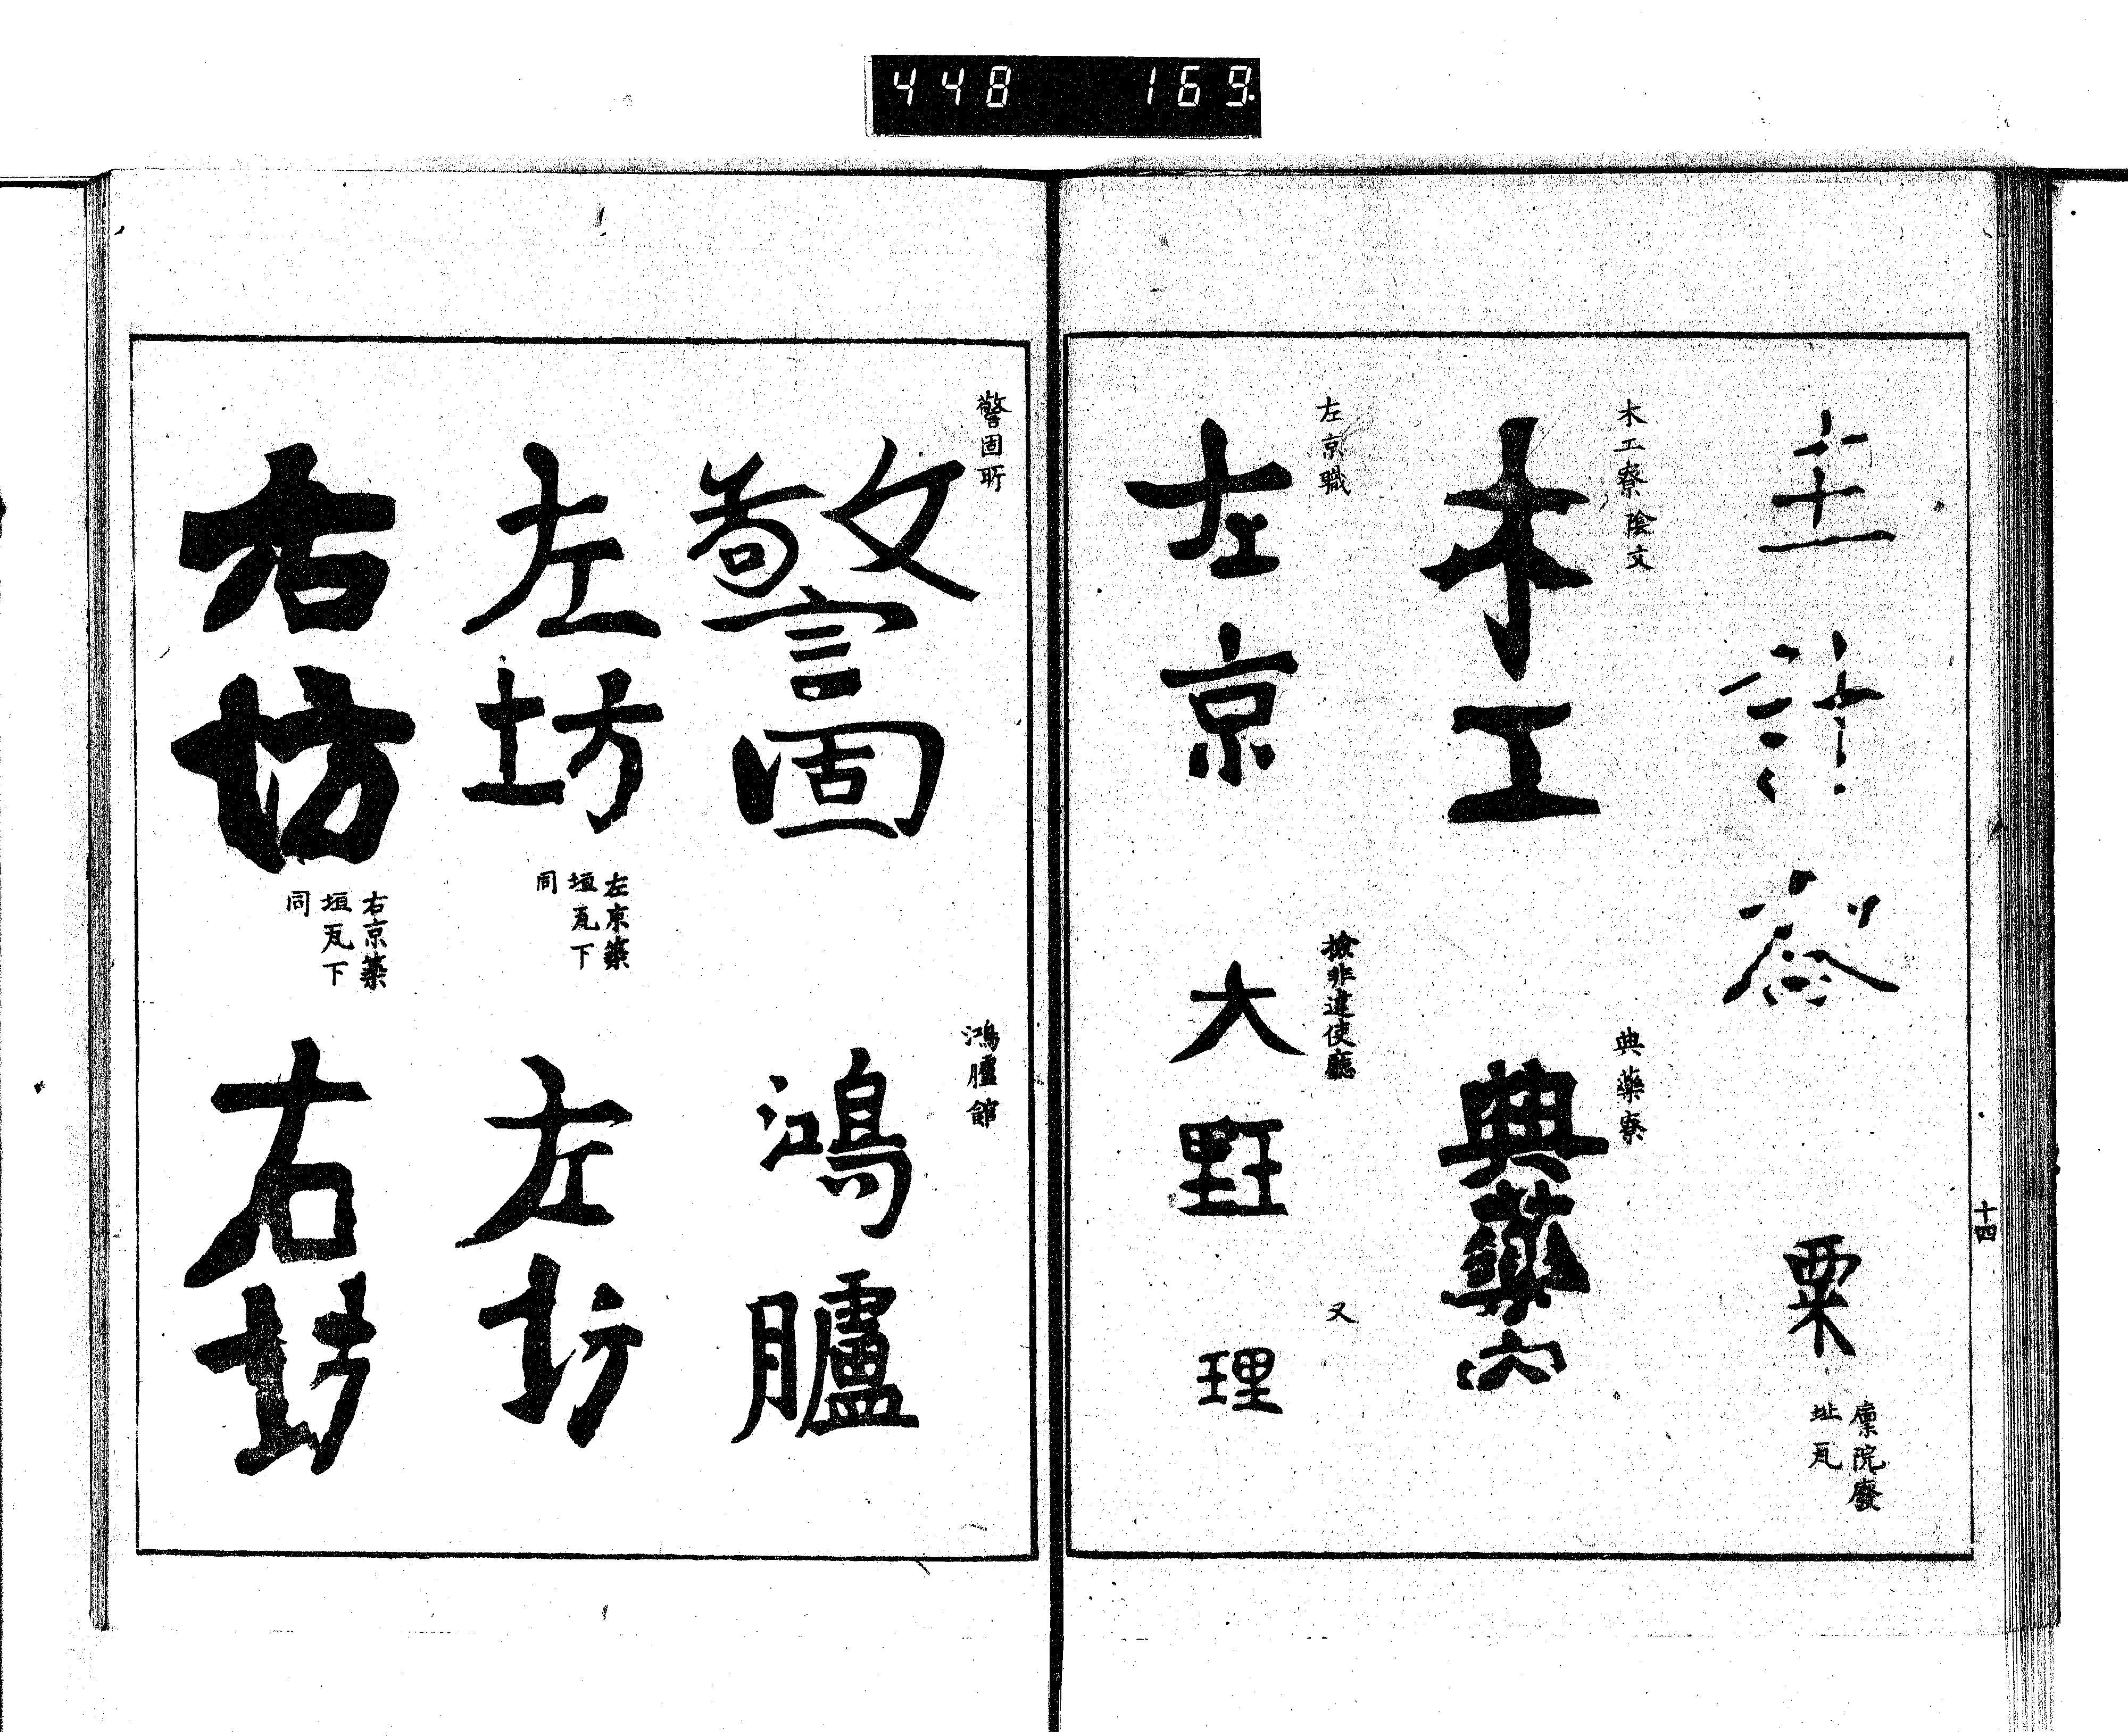 448 169.
主計寮
粟
廩院廢
址瓦
木工寮 陰文
木工
典藥寮
典藥
左京職
左京
撿非違使廳
大理
又
理
十四
警固所
警固
鴻臚館
鴻臚
左坊
左京築
垣瓦下
同
左坊
右坊
右京築
垣瓦下
同
右坊